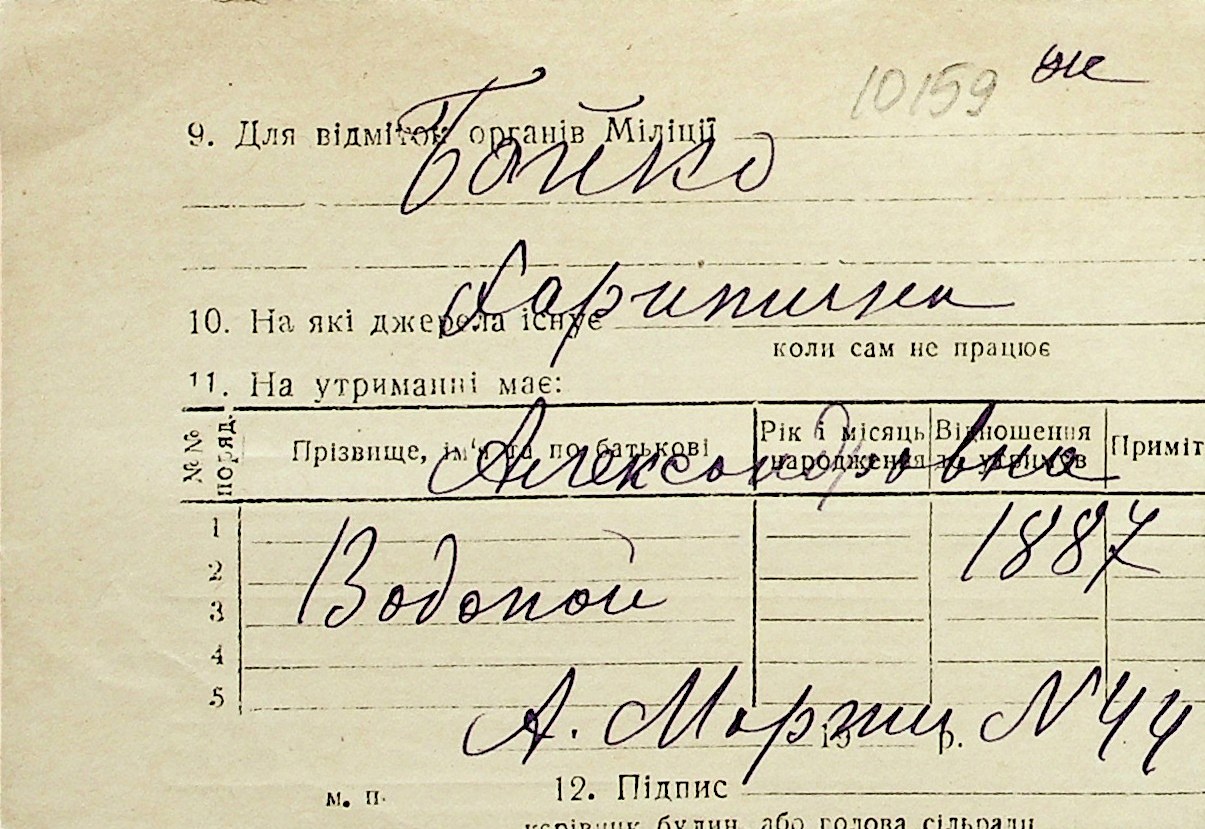 10159 ж
9. Для відміток органів Міліції
Бойко
Харитина
10. На які джерела існує
коли сам не працює
11. На утриманні має:
№№ поряд. Прізвище, ім'я та по батькові Рік і місяць народження Відношення Приміт
Александровна
1 1887
2 Водопой
3
4
5
А. 19 р. N 44
м. п. 12. Підпис
керівник будин. або голова сільради